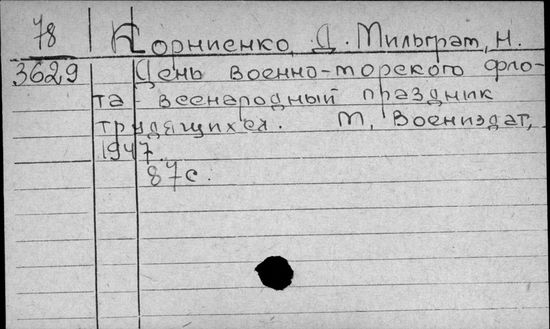 78 Корниенко, Д. Мильграт, Н.
3629 День военно-морского фло-
та - всенародный праздник
трудящихся. М, Воениздат,
1947.
87с.